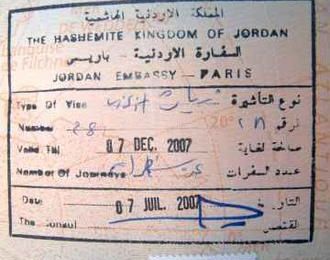 المملكة الاردنية الهاشمية
THE HASHEMITE KINGDOM OF JORDAN
السفارة الاردنية - باريس
JORDAN EMBASSY - PARIS
Type Of Visa نوع التأشيرة
Number 281
Valid Till 07 DEC. 2007 صالحة لغاية
Number Of Journeys عدد السفرات
Date 07 JUIL. 2007 التاريخ
The Consul القنصل